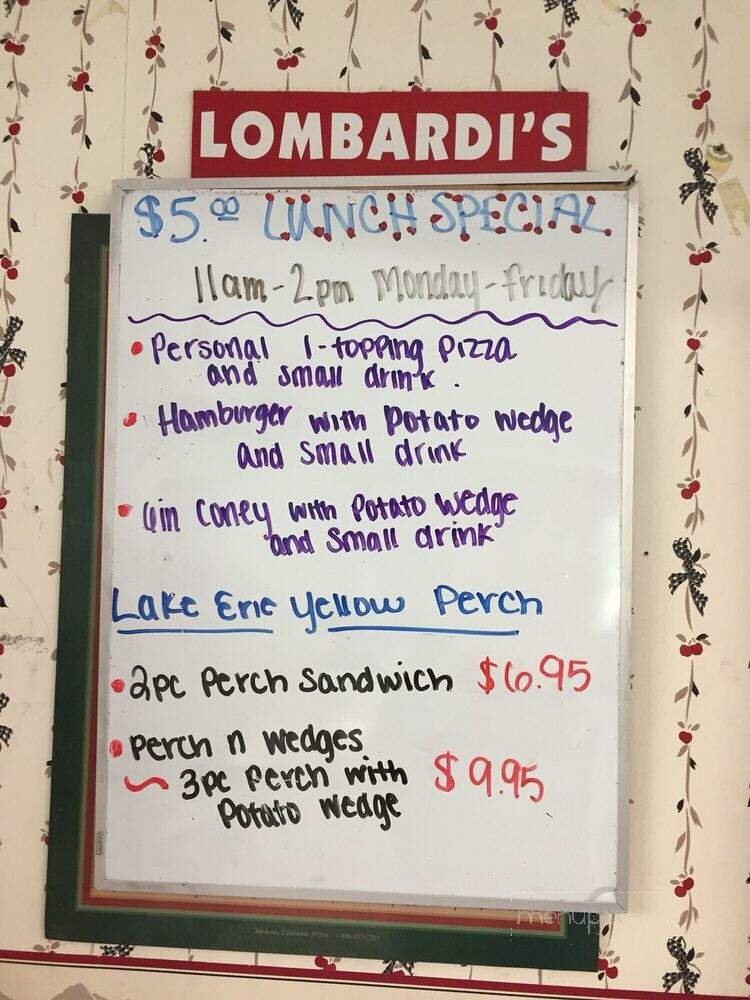 LOMBARDI'S
$5.00 LUNCH SPECIAL
11am-2pm Monday-friday
• Personal 1-topping pizza
and small drink.
• Hamburger with potato wedge
and small drink
• 6in Coney with Potato wedge
and small drink
Lake Erie Yellow Perch
• 2pc Perch Sandwich $6.95
• Perch n wedges
~ 3pc Perch with $9.95
Potato wedge
Modesto, California 95354
menupix